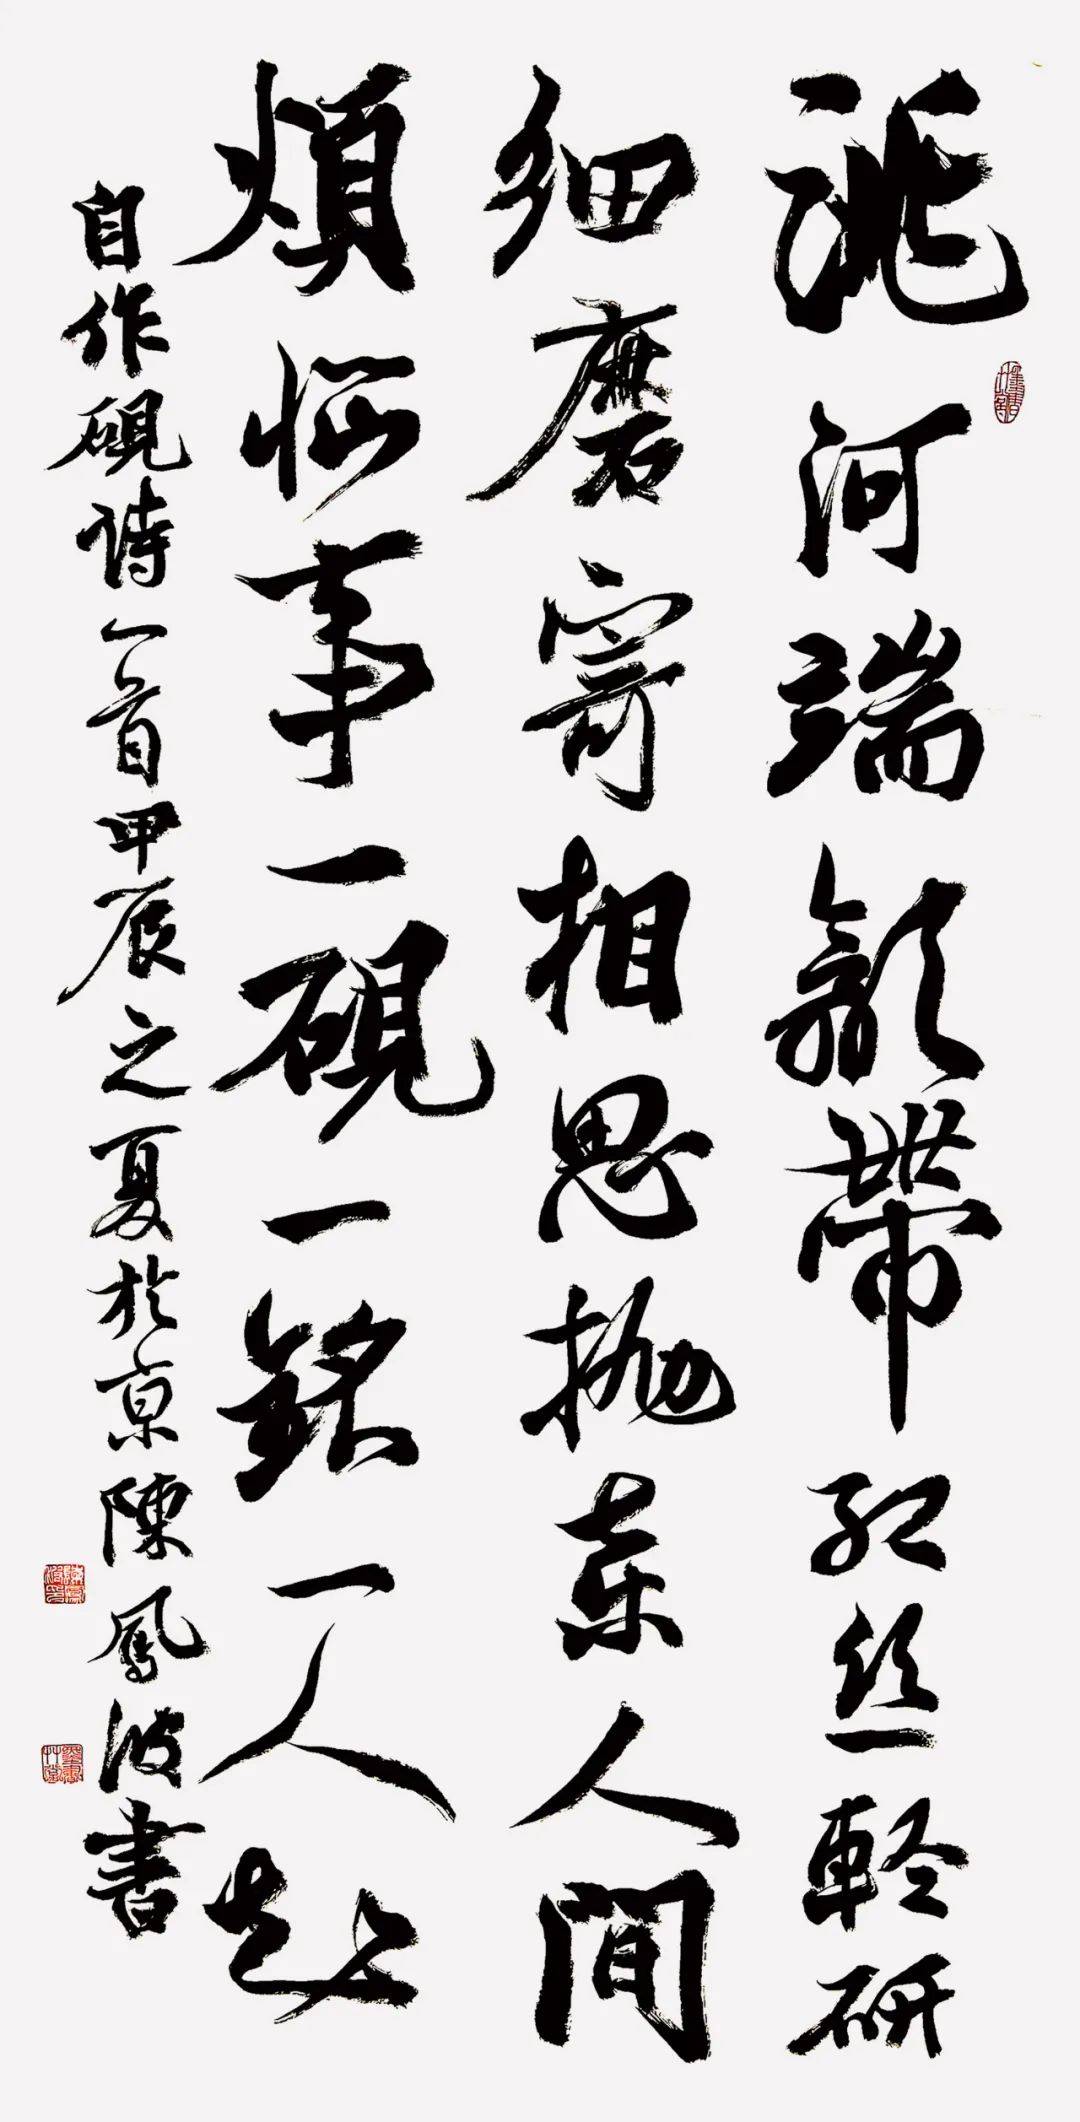 洮河端歙帶紅絲輕研
細磨寄相思拋棄人間
煩惱事一硯一銘一人
自作硯詩一首甲辰之夏於京陳鳳波書